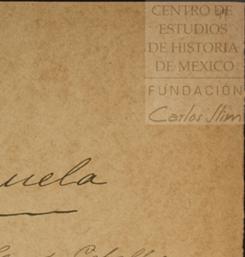 CENTRO DE
ESTUDIOS
DE HISTORIA
DE MEXICO
FUNDACIÓN
Carlos Slim
uela